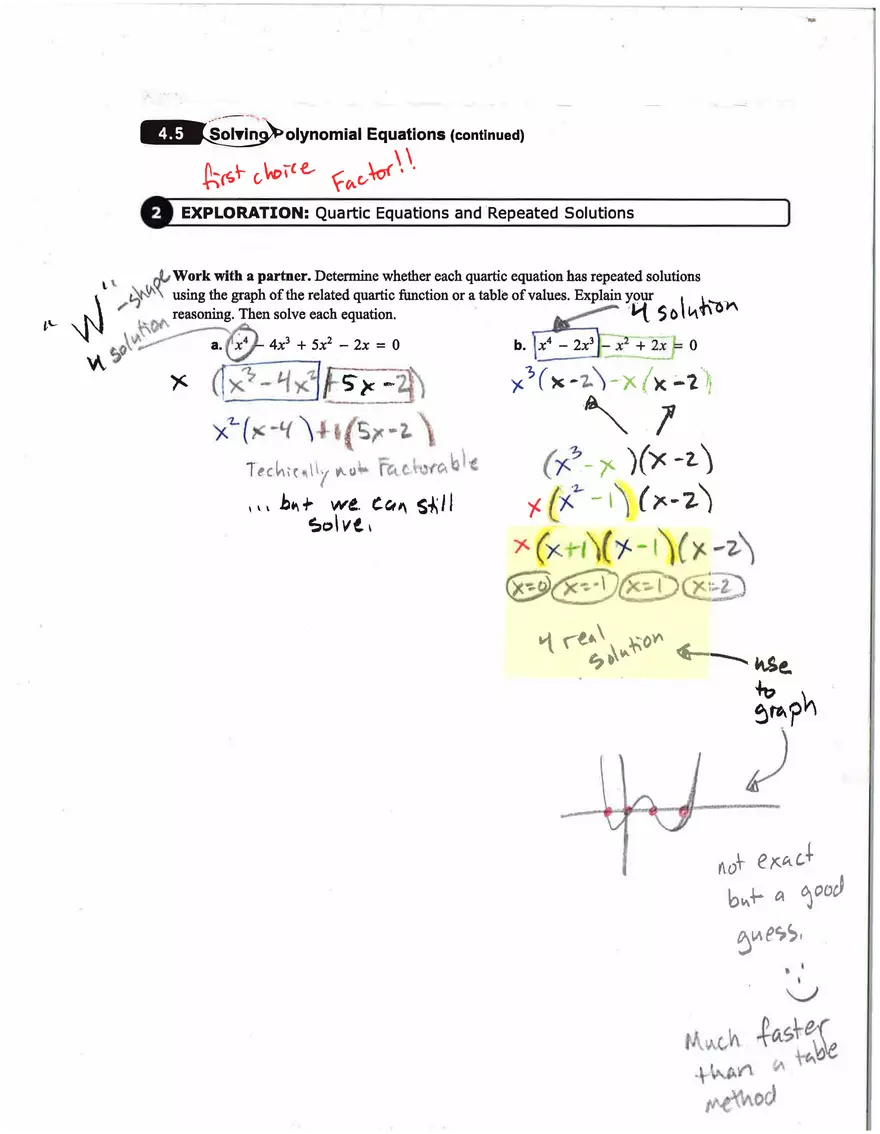 4.5 Solving Polynomial Equations (continued)
first choice Factor!!
2 EXPLORATION: Quartic Equations and Repeated Solutions
"W"-shape
4 solution
Work with a partner. Determine whether each quartic equation has repeated solutions
using the graph of the related quartic function or a table of values. Explain your
reasoning. Then solve each equation.
4 solution
a. x⁴ – 4x³ + 5x² – 2x = 0
x (x³-4x² +5x-2)
x²(x-4) +1(5x-2)
Techically not Factorable
... but we can still
solve.
b. x⁴ – 2x³ – x² + 2x = 0
x³(x-2)-x(x-2)
(x³-x)(x-2)
x(x²-1)(x-2)
x(x+1)(x-1)(x-2)
x=0 x=-1 x=1 x=2
4 real
solution
use
to
graph
not exact
but a good
guess.
Much faster
than a table
method